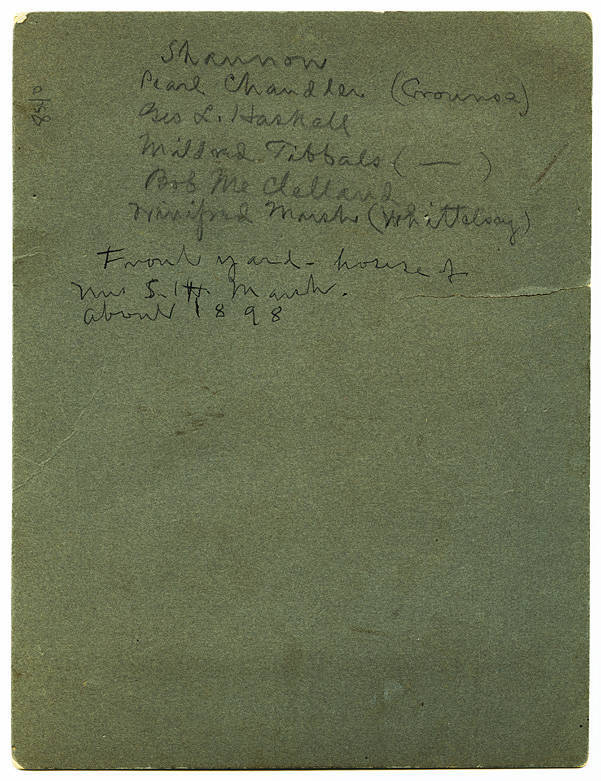 Shannon
Pearl Chandler (Grounse)
Geo L. Haskell
Mildred Tibbals ( — )
Bob McClelland
Winifred Marsh (Whittelsey)
Front yard - house of
Mrs S. H. Marsh.
about 1898